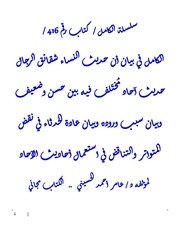 سلسلة الكامل / كتاب رقم 416 /
الكامل في بيان أن حديث النساء شقائق الرجال
حديث آحاد مختلف فيه بين حسن وضعيف
وبيان سبب وروده وبيان عادة الحدثاء في نقض
المتواتر والتناقض في استعمال أحاديث الآحاد
لمؤلفه د / عامر أحمد الحسيني .. الكتاب مجاني